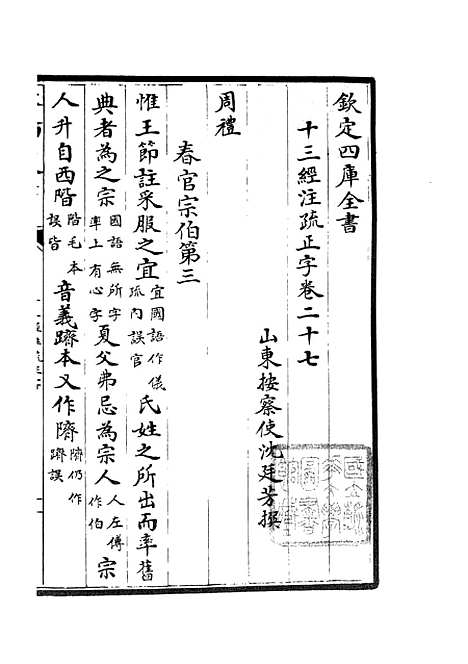 欽定四庫全書
十三經注疏正字卷二十七
山東按察使沈廷芳撰
周禮
春官宗伯第三
惟王節註采服之宜宜國語作儀疏內誤官氏姓之所出而率舊
典者為之宗國語無所字率上有心字夏父弗忌為宗人人左傳作伯宗
人升自西階階毛本誤皆音義躋本又作隮隮仍作躋誤